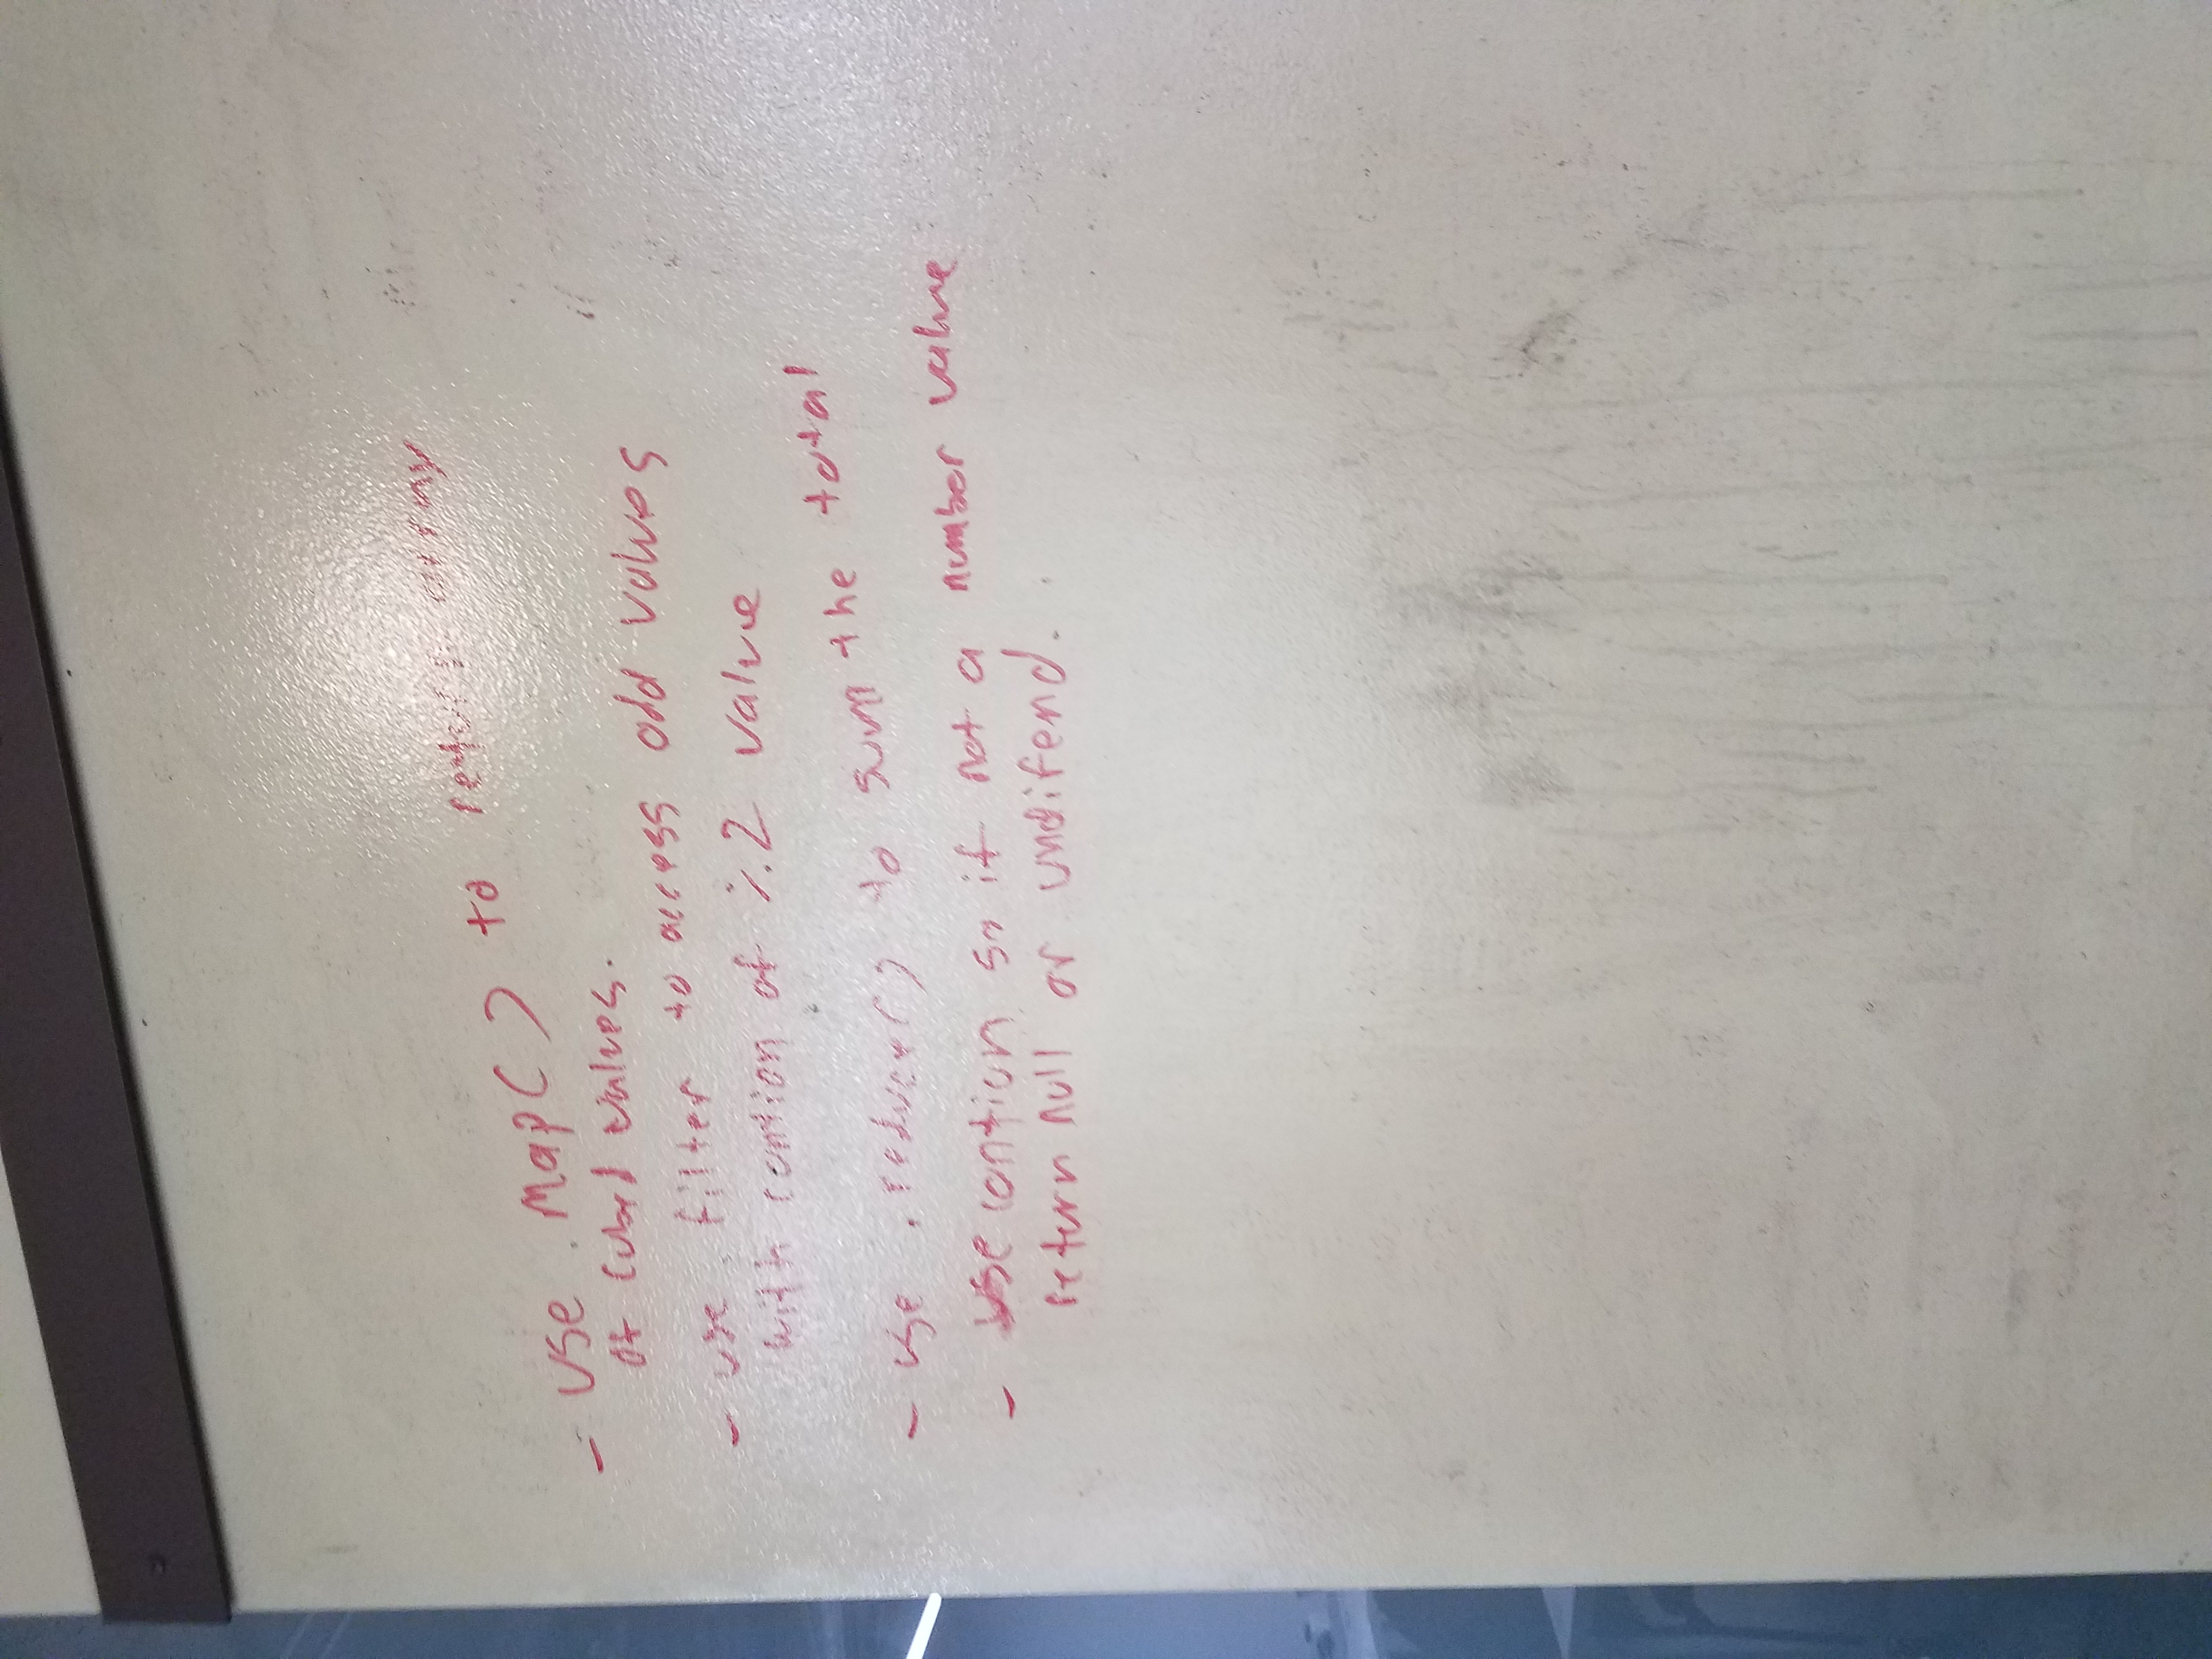 - Use .Map() to return array
of cubed values.
- use .filter to access odd values
with contion of %2 value
- use .reduce() to sum the total
- Use contion so if not a number value
return null or undifend.